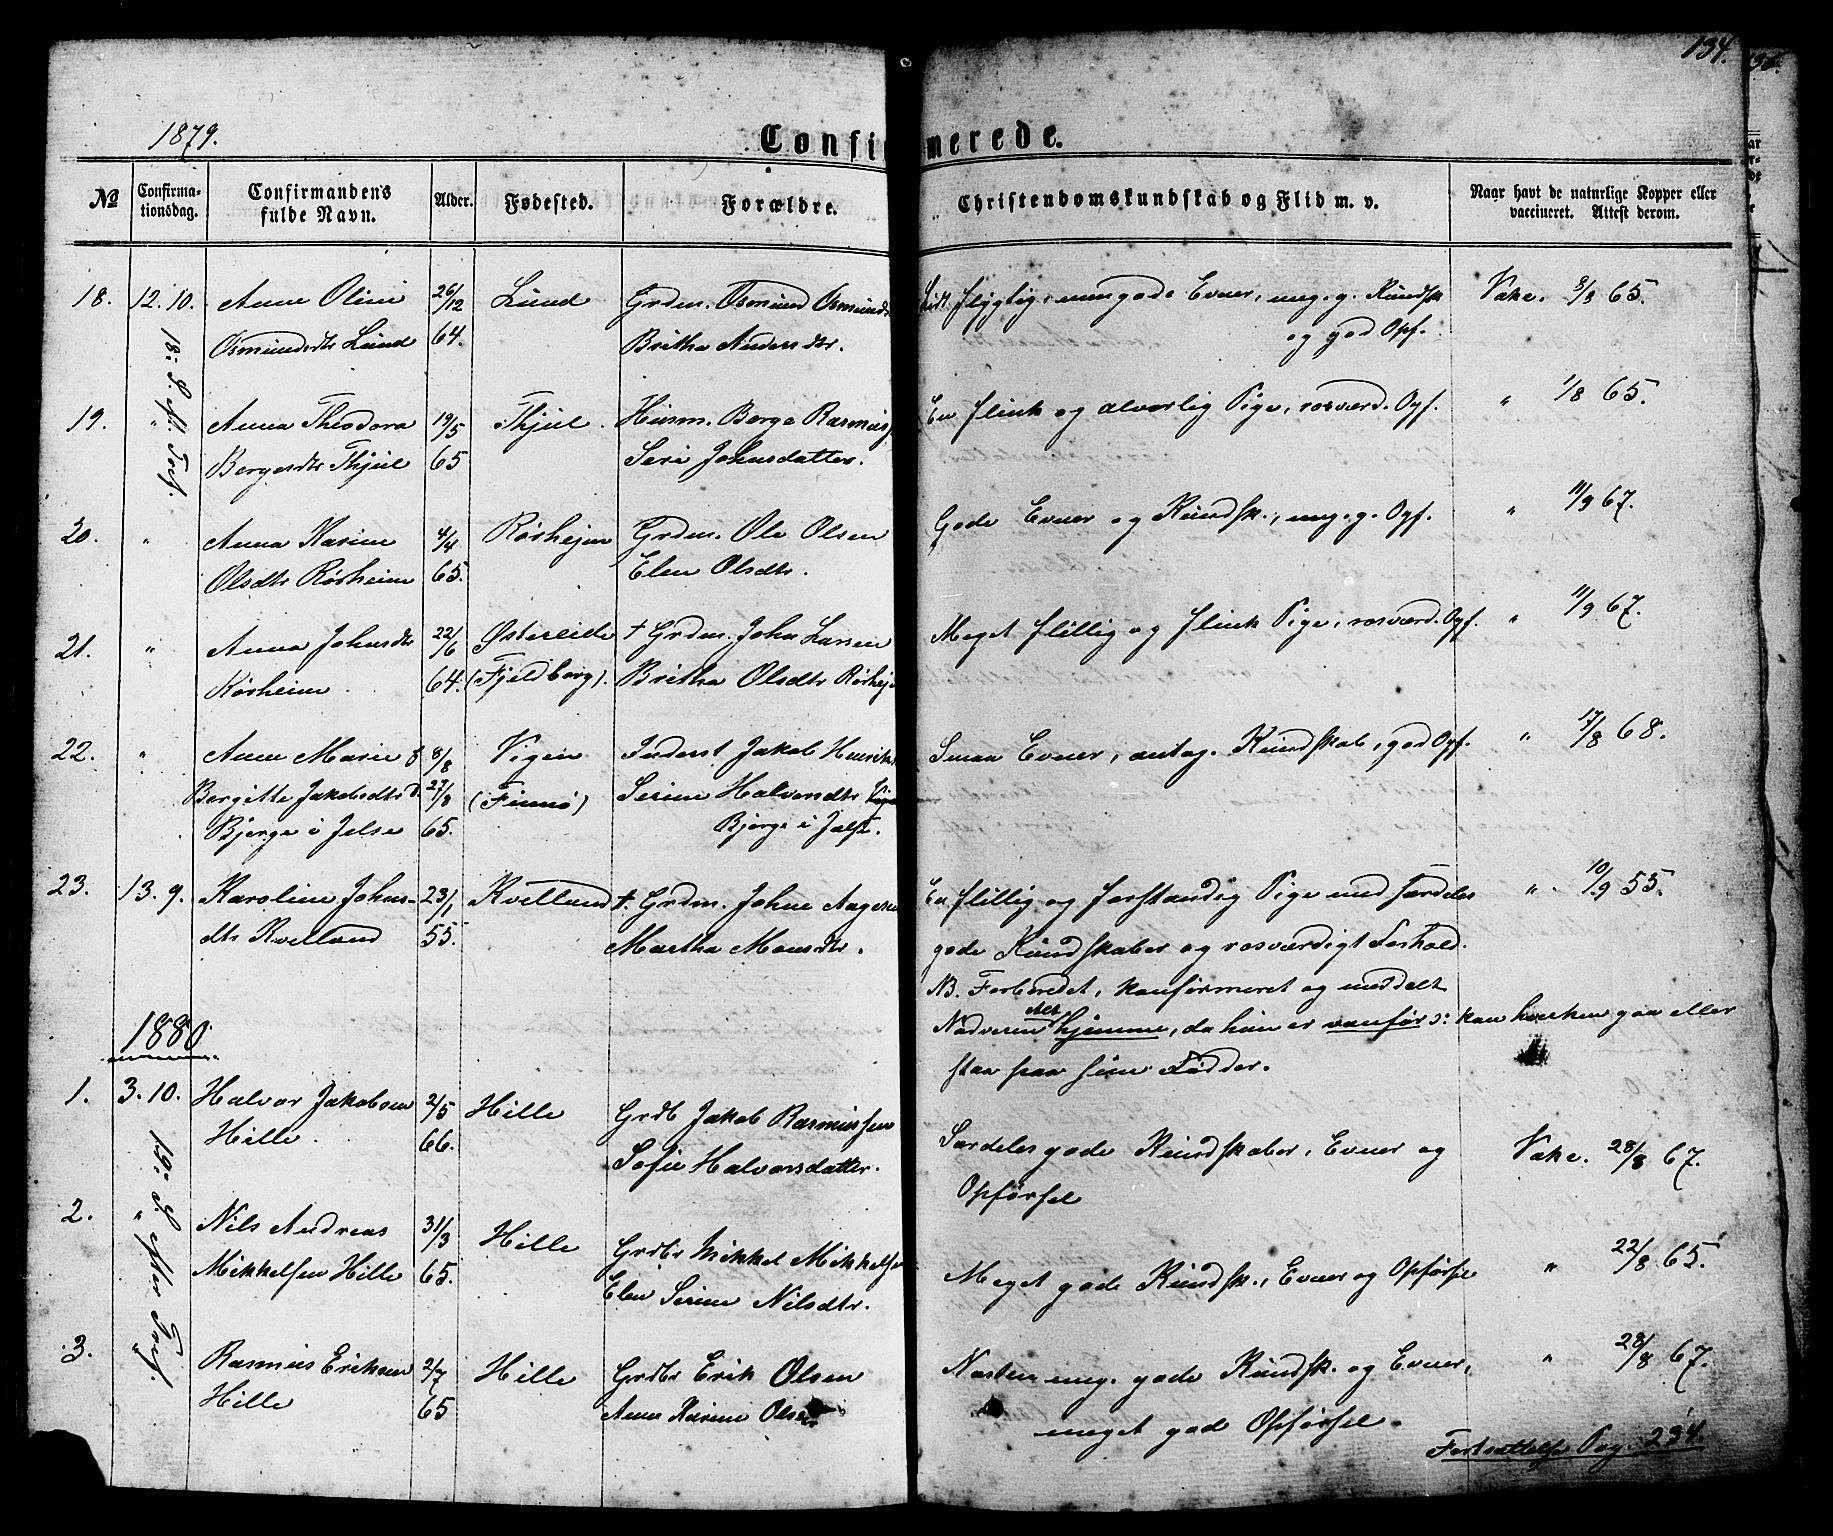 134.
1879.
Confirmerede.
No
Confirma-
tionsdag.
Confirmandens
fulde Navn.
Alder.
Fødested.
Forældre.
Christendomskundskab og Flid m. v.
Naar havt de naturlige Kopper eller
vaccineret. Attest derom.
18. 12. 10. Anne Oline 26/12 Lund Grdm. Osmund Osmunds
Lidt flygtig, men gode Evner, meg. g. Kundsk Vakc. 8/8 65.
Osmundsdtr Lund 64. Britha Andersdtr.
og god Opf.
18. S. Aft. Tref.
19. " Anna Theodora 19/5 Thjul. Husm. Berge Rasmus
En flink og alvorlig Pige, rosværd. Opf. " 1/8 65.
Bergesdtr Thjul 65 Seri Johnsdatter.
20. " Anna Karine 4/4 Rørhejm Grdm. Ole Olsen
Gode Evner og Kundsk., meg. g. Opf. " 11/9 67.
Olsdtr Rørheim 65. Elen Olsdtr.
21. " Anna Johnsdtr 22/6 Østerlide † Grdm. John Larsen
Meget flittig og flink Pige, rosværd. Opf. " 11/9 67.
Rørheim 64. (Fjeldborg). Britha Olsdtr Rørhej
22. " Anne Marie 8/8 Vigen Inderst Jakob Henriks
Smaa Evner, antag. Kundskab, god Opf. " 17/8 68.
Bergitte Jakobsdtr 27/8 (Finnø) Serine Halvorsdtr
Bjerge i Jelse 65. Bjerge i Jelse.
23. 13. 9. Karoline Johns- 23/1 Kvelland †. Grdm. John Aagesen
En flittig og forstandig Pige med særdeles " 10/9 55.
dtr Kvelland 55. Martha Monsdtr.
gode Kundskaber og rosværdigt Forhold.
NB. Forberedet, konfirmeret og meddelt
Nadveren hjemme, da hun er vanfør ɔ: kan hverken gaa eller
staa paa sine Fødder.
1880
1. 3. 10. Halvor Jakobsen 2/5 Hille Grdb Jakob Rasmussen
Særdeles gode Kundskaber, Evner og Vakc. 28/8 67.
Hille. 66. Sofie Halvorsdatter.
Opførsel
19. S. efter Tref.
2. " Nils Andreas 31/3 Hille Grdbr Mikkel Mikkelsen
Meget gode Kundsk., Evner og Opførsel " 22/8 65.
Mikkelsen Hille 65. Elen Serine Nilsdtr.
3. Rasmus Eriksen 2/7 Hille Grdbr Erik Olsen
Næsten meg. gode Kundsk. og Evner, " 28/8 67.
Hille 65 Anne Karine Olsdtr
meget god Opførsel.
Fortsættelse Pag. 234.